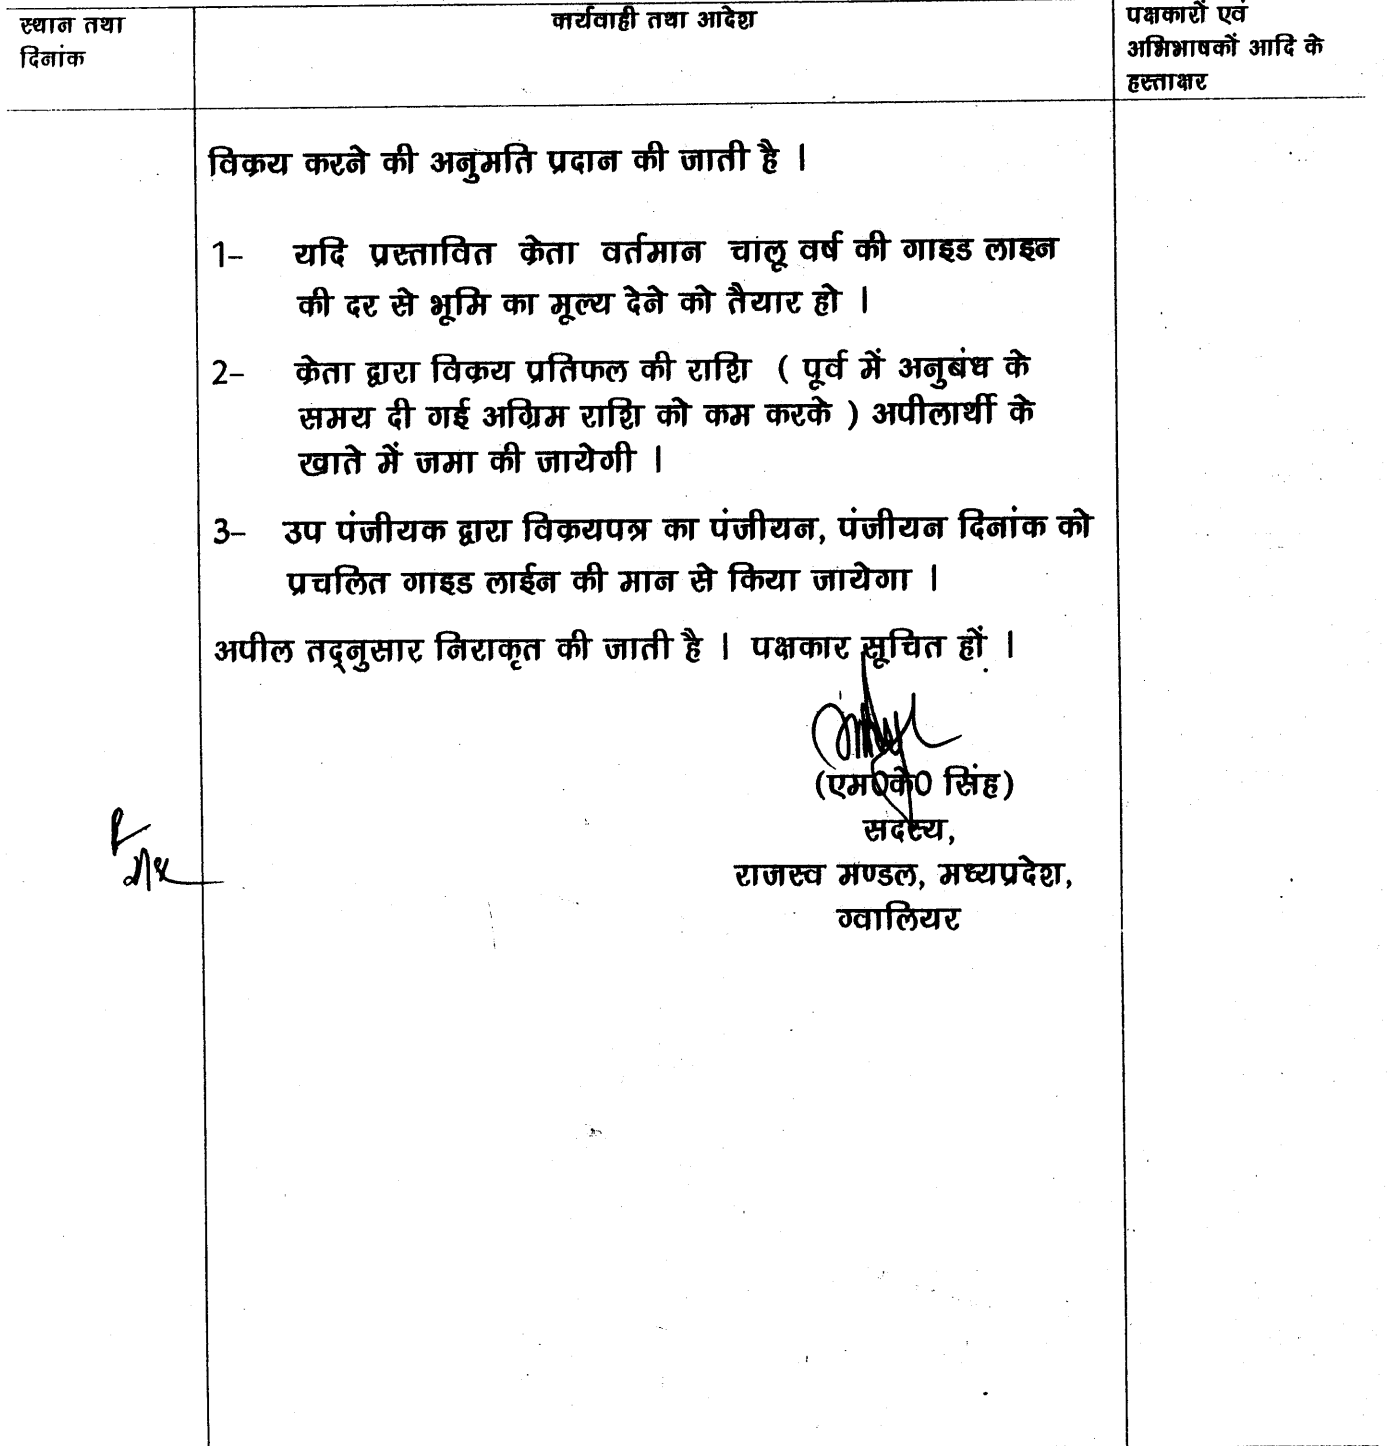 स्थान तथा
दिनांक
कार्यवाही तथा आदेश
पक्षकारों एवं
अभिभाषकों आदि के
हस्ताक्षर
विक्रय करने की अनुमति प्रदान की जाती है ।
1– यदि प्रस्तावित क्रेता वर्तमान चालू वर्ष की गाइड लाइन
की दर से भूमि का मूल्य देने को तैयार हो ।
2– क्रेता द्वारा विक्रय प्रतिफल की राशि ( पूर्व में अनुबंध के
समय दी गई अग्रिम राशि को कम करके ) अपीलार्थी के
खाते में जमा की जायेगी ।
3– उप पंजीयक द्वारा विक्रयपत्र का पंजीयन, पंजीयन दिनांक को
प्रचलित गाइड लाईन की मान से किया जायेगा ।
अपील तद्नुसार निराकृत की जाती है । पक्षकार सूचित हों ।
(एम0के0 सिंह)
सदस्य,
राजस्व मण्डल, मध्यप्रदेश,
ग्वालियर